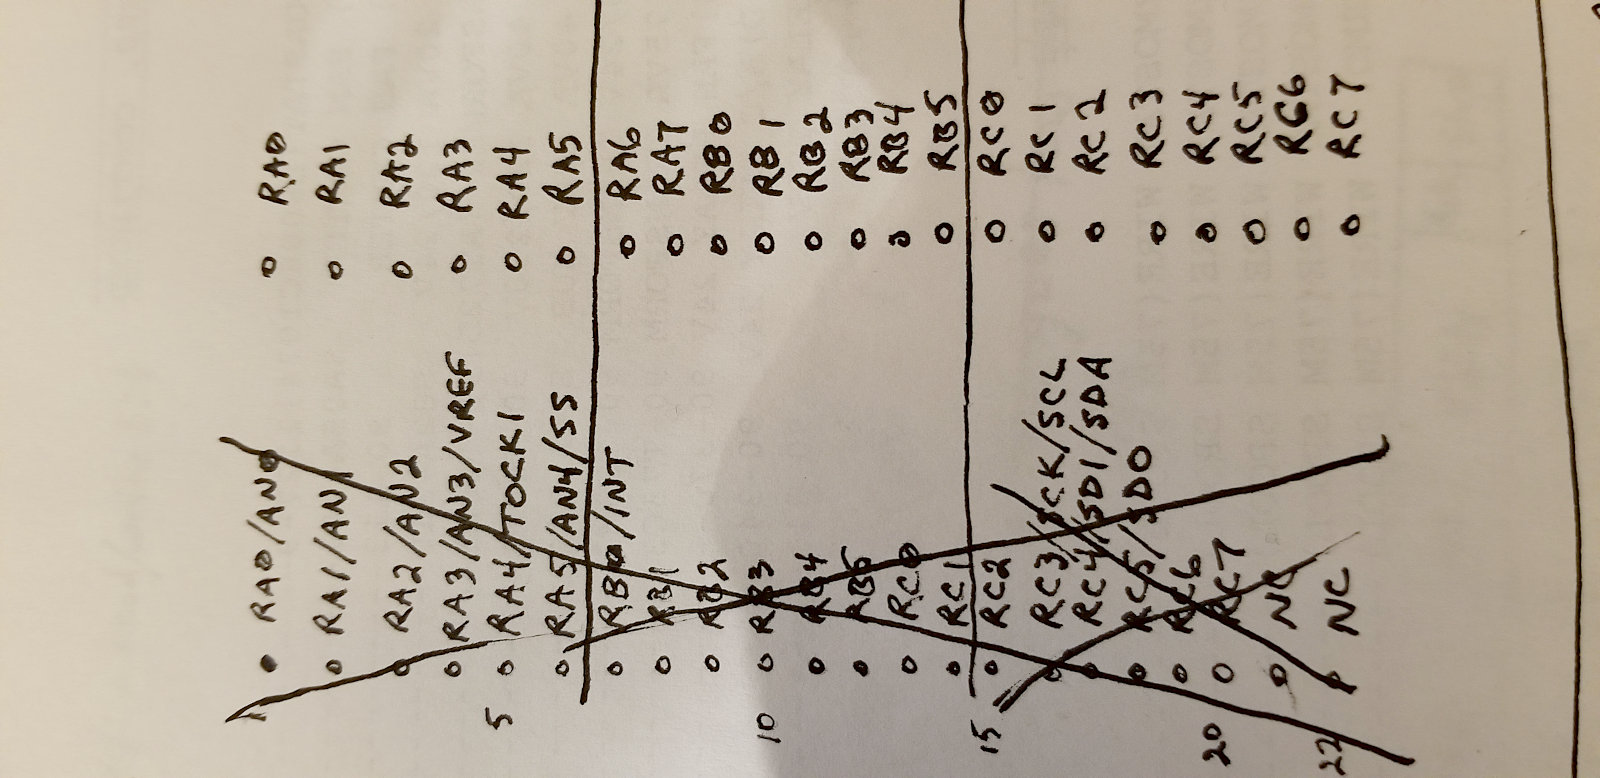 1 RA0/AN0 RA0
RA1/AN1 RA1
RA2/AN2 RA2
RA3/AN3/VREF RA3
5 RA4/TOCK1 RA4
RA5/AN4/SS RA5
RB0/INT RA6
RB1 RA7
RB2 RB0
10 RB3 RB1
RB4 RB2
RB5 RB3
RC0 RB4
RC1 RB5
15 RC2 RC0
RC3/SCK/SCL RC1
RC4/SDI/SDA RC2
RC5/SDO RC3
RC6 RC4
20 RC7 RC5
NC RC6
22 NC RC7